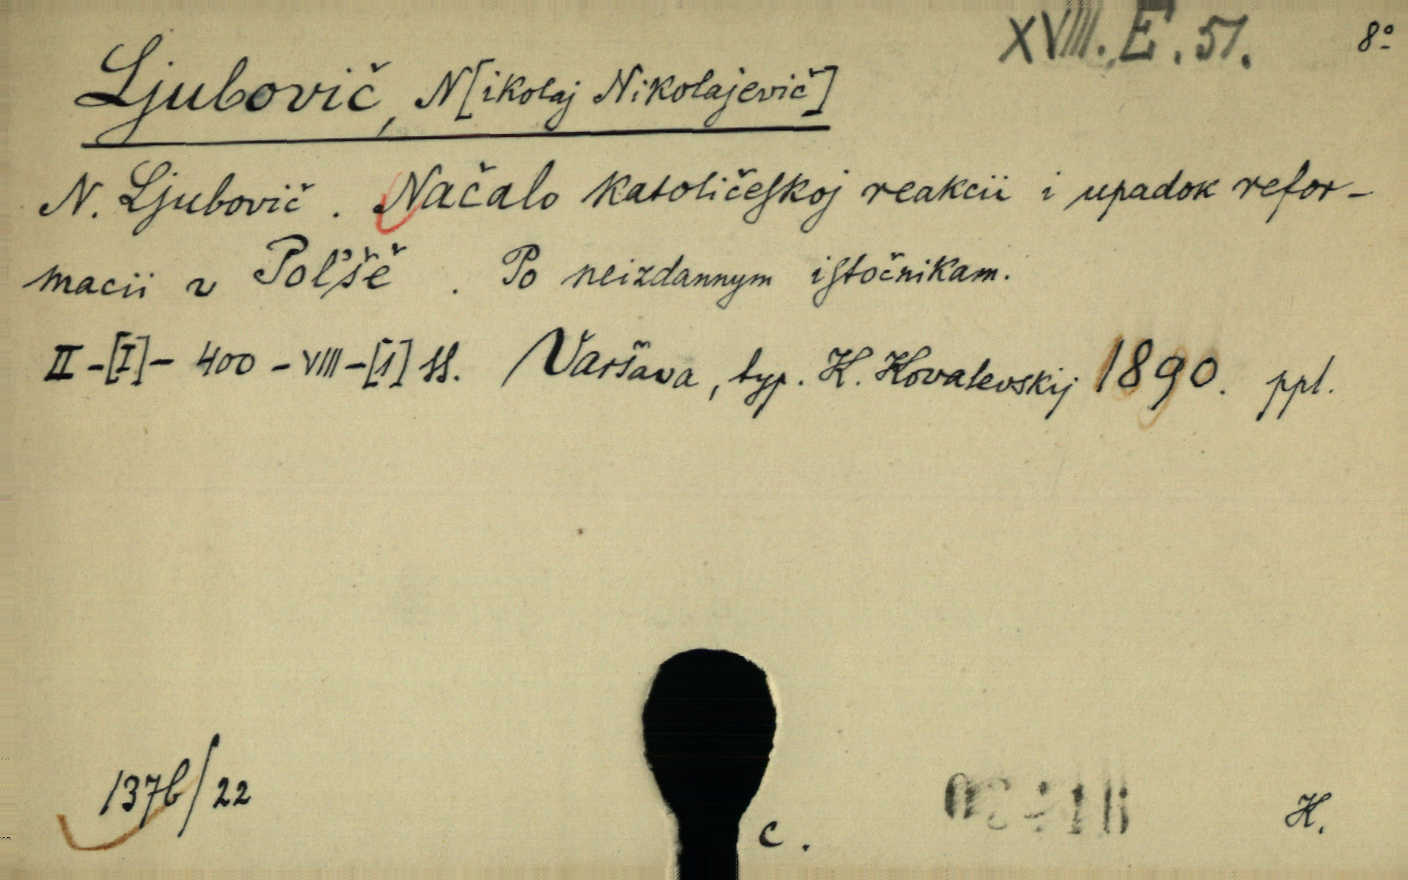 XVIII. E. 51. 8º
Ljubovič, N[ikolaj Nikolajevič]
N. Ljubovič. Načalo katoličeſkoj reakcii i upadok refor-
macii v Poľšě. Po neizdannym iſtočnikam.
II-[I]- 400 -VIII-[1] ss. Varšava, typ. K. Kovalevskij 1890. ppl.
137b/22
c.
K.